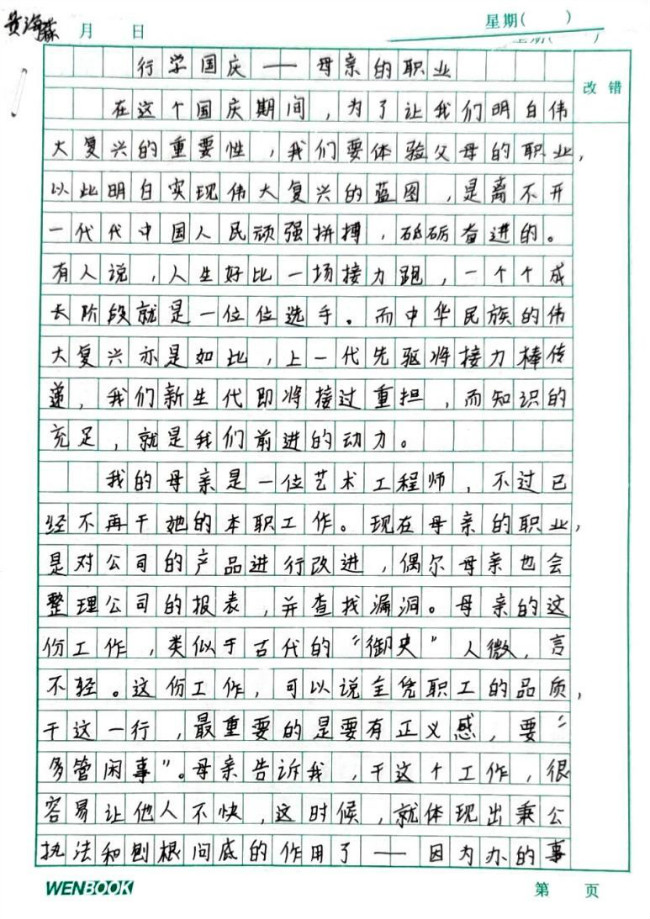 黄海森 月 日 星期( )
星期( )
改错
行学国庆——母亲的职业
在这个国庆期间，为了让我们明白伟
大复兴的重要性，我们要体验父母的职业，
以此明白实现伟大复兴的蓝图，是离不开
一代代中国人民顽强拼搏，砥砺奋进的。
有人说，人生好比一场接力跑，一个个成
长阶段就是一位位选手。而中华民族的伟
大复兴亦是如此，上一代先驱将接力棒传
递，我们新生代即将接过重担，而知识的
充足，就是我们前进的动力。
我的母亲是一位艺术工程师，不过已
经不再干她的本职工作。现在母亲的职业，
是对公司的产品进行改进，偶尔母亲也会
整理公司的报表，并查找漏洞。母亲的这
份工作，类似于古代的“御史”人微，言
不轻。这份工作，可以说全凭职工的品质，
干这一行，最重要的是要有正义感，要“
多管闲事”。母亲告诉我，干这个工作，很
容易让他人不快，这时候，就体现出秉公
执法和刨根问底的作用了——因为办的事
WENBOOK 第 页